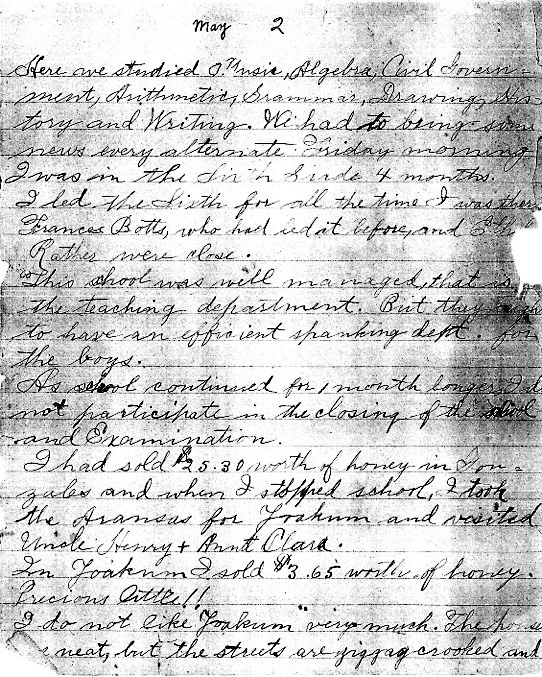 May 2
Here we studied Music, Algebra, Civil Govern-
ment, Arithmetic, Grammar, Drawing, His-
tory and Writing. We had to bring some
news every alternate Friday morning
I was in the Sixth Grade 4 months.
I led the Sixth for all the time I was there
Frances Botts, who had led it before, and
Rather were close.
This school was well managed, that is,
the teaching department. But they
to have an efficient spanking dept. for
the boys.
As school continued for 1 month longer, I
not participate in the closing of the school
and Examination.
I had sold $25.30 worth of honey in Gon-
zales and when I stopped school, I took
the Aransas for Yoakum and visited
Uncle Henry + Aunt Clara.
In Yoakum I sold $3.65 worth of honey.
Precious little!!
I do not like "Yoakum" very much. The
neat, but the streets are zigzag crooked and